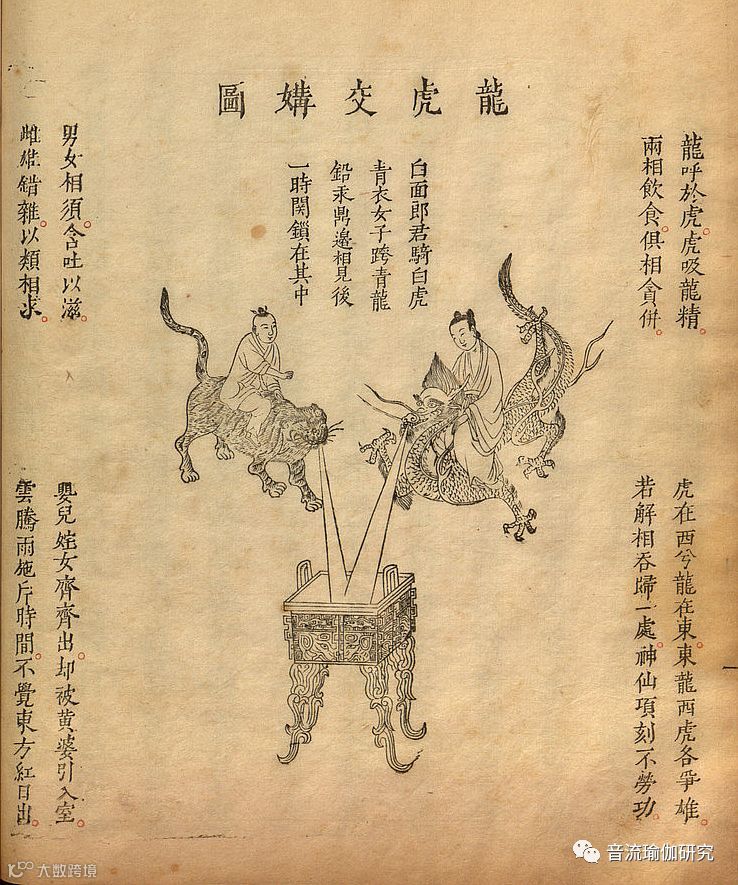 龍虎交媾圖
龍呼於虎。虎吸龍精。
兩相飲食。俱相貪併。
白面郎君騎白虎
青衣女子跨青龍
鉛汞鼎邊相見後
一時関鎖在其中
男女相須。含吐以滋。
雌雄錯雜。以類相求。
虎在西兮龍在東。東龍西虎各爭雄。
若解相吞歸一處。神仙項刻不勞功。
嬰兒姹女齊齊出。却被黄婆引入室。
雲騰雨施片時間。不覺東方紅日出。
音流瑜伽研究
大数跨境